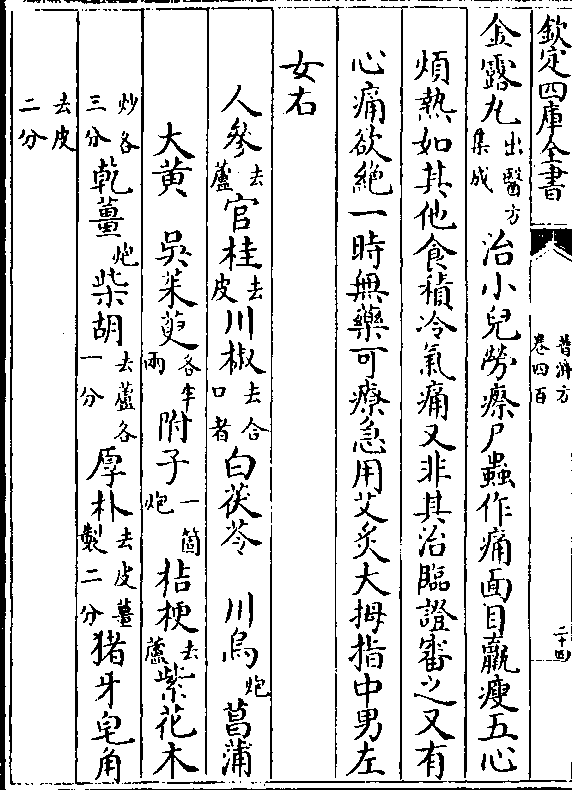 欽定四庫全書 普濟方 卷四百 二十四
金露丸出醫方集成治小兒勞瘵尸蟲作痛面目羸瘦五心
煩熱如其他食積冷氣痛又非其治臨證審之又有
心痛欲絕一時無藥可療急用艾灸大拇指中男左
女右
人參去蘆官桂去皮川椒去合口者白茯苓 川烏炮菖蒲
大黃 吳茱萸各半兩附子一箇炮桔梗去蘆紫花木
炒各三分乾薑炮柴胡去蘆各一分厚朴去皮薑製二分猪牙皂角
去皮二分